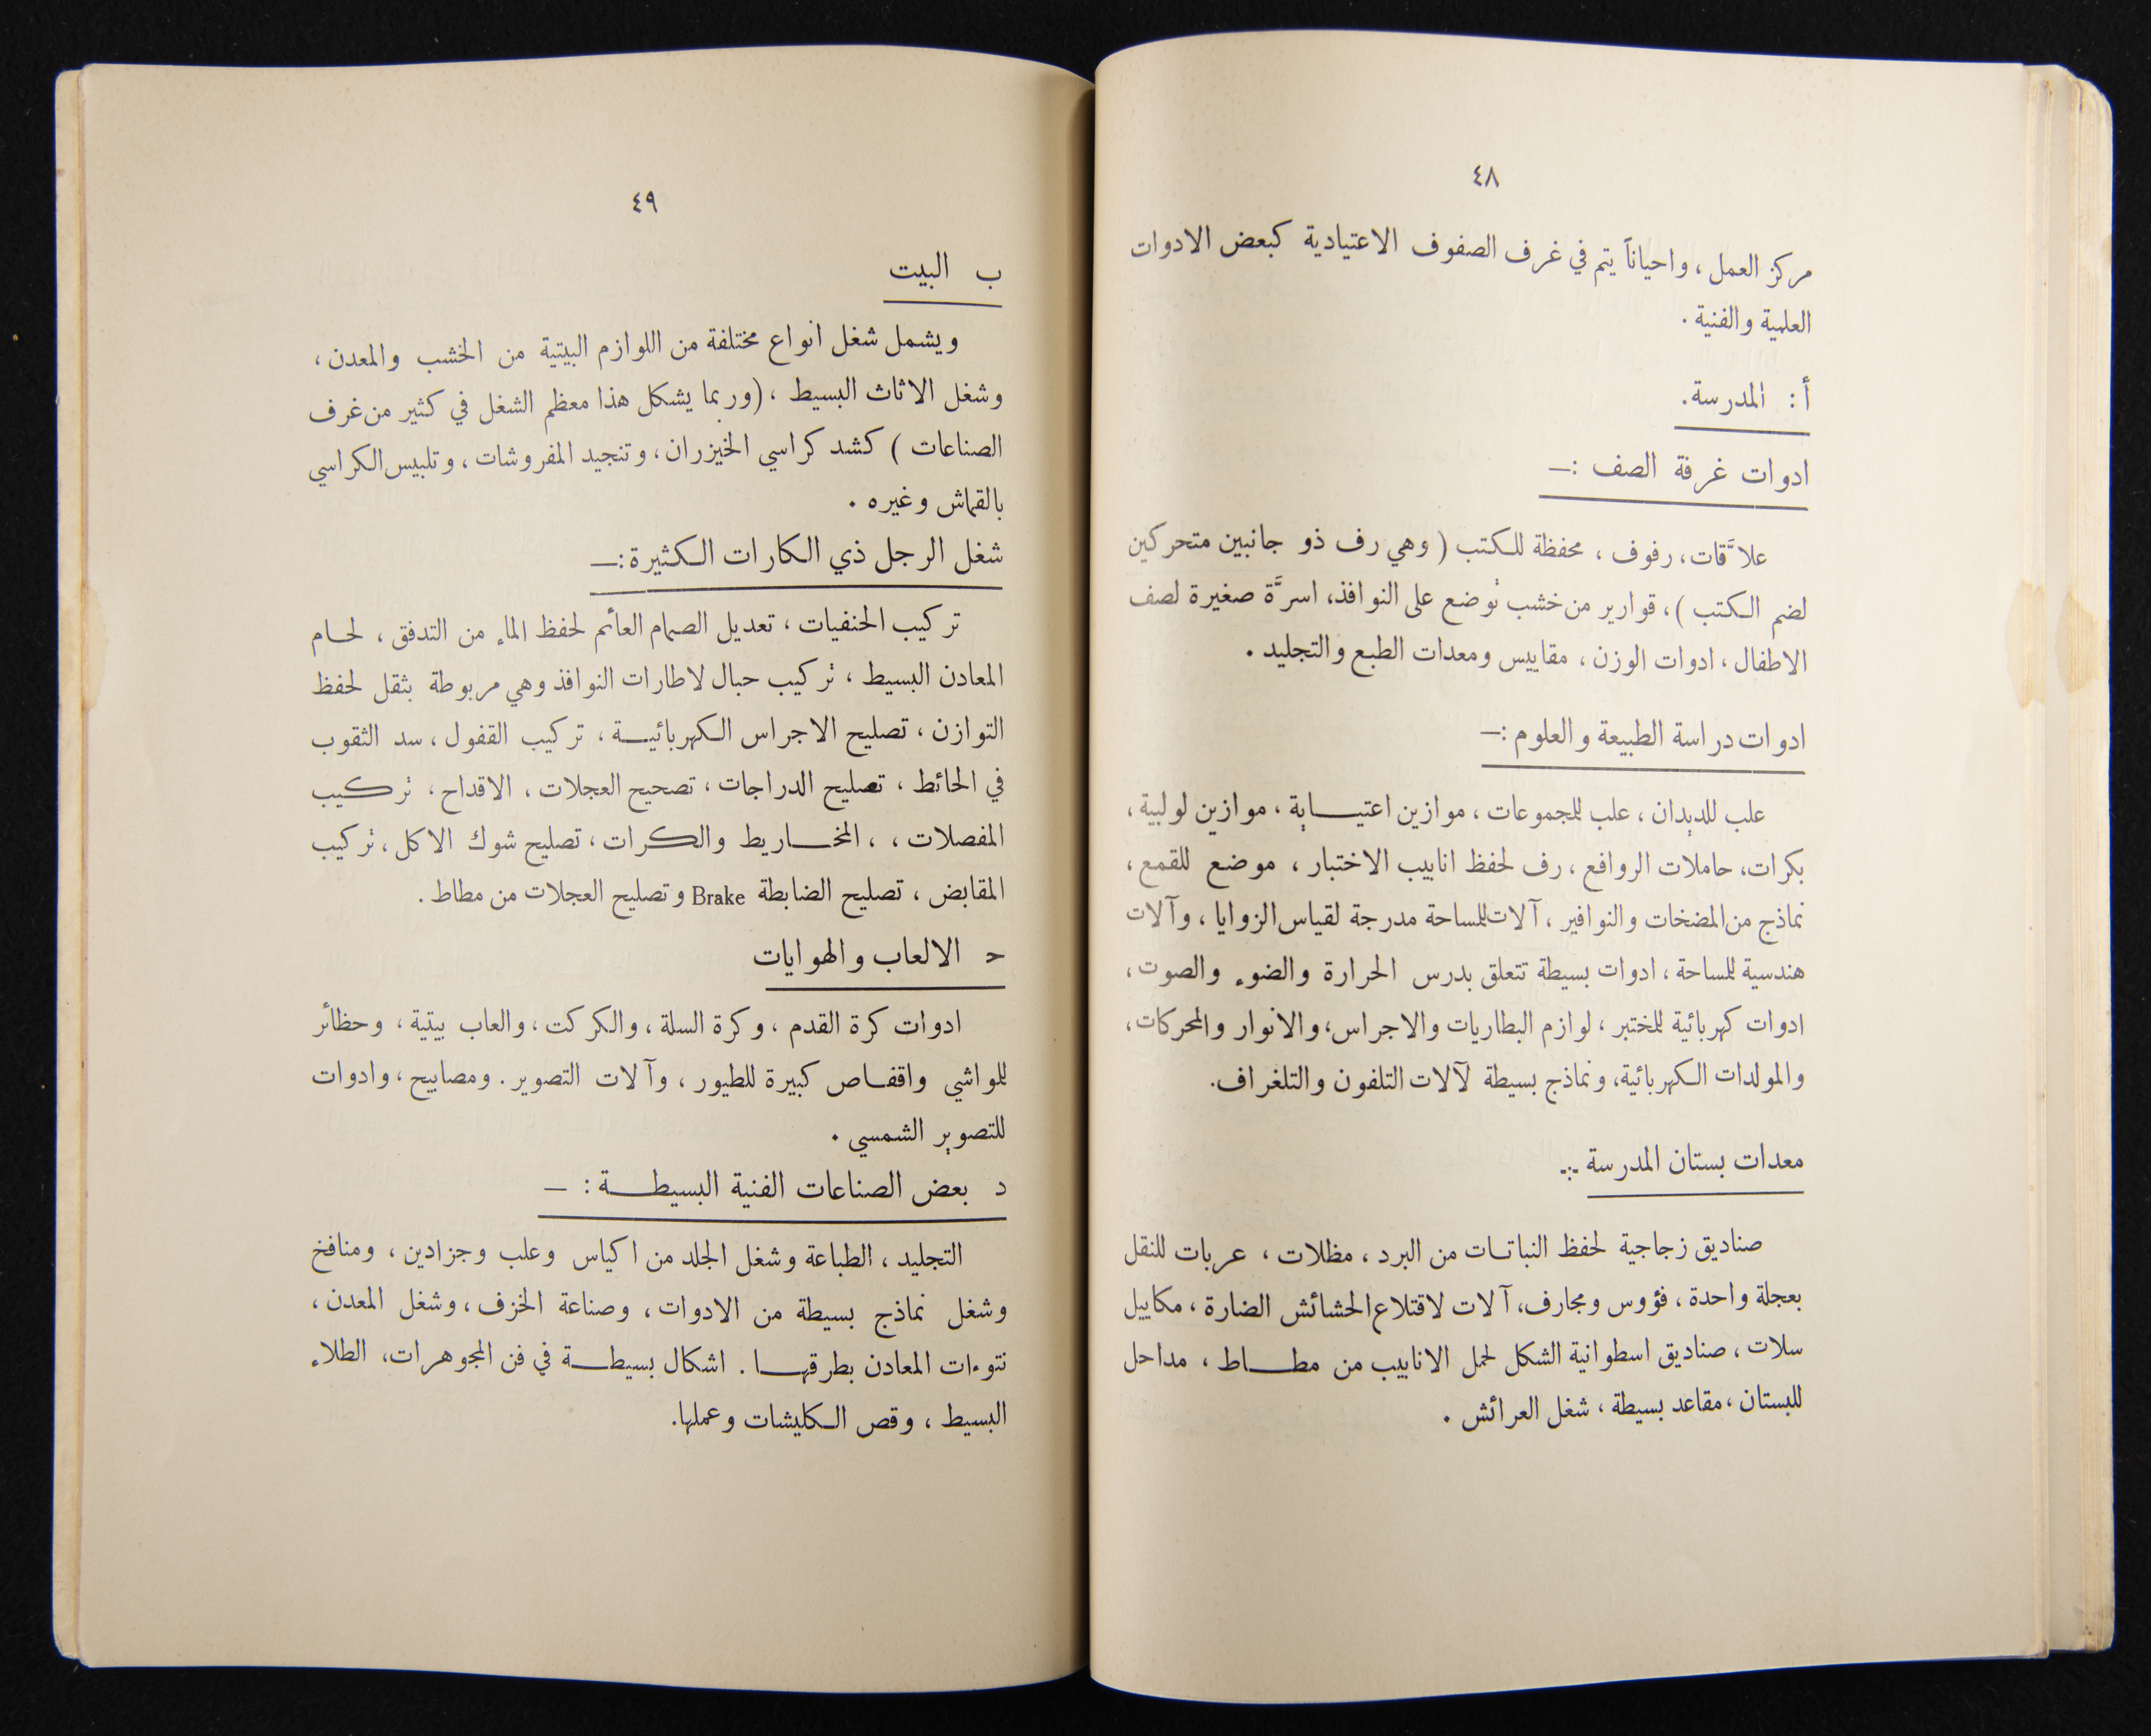 ٤٨
مركز العمل ، واحياناً يتم في غرف الصفوف الاعتيادية كبعض الادوات
العلمية والفنية .
أ : المدرسة .
ادوات غرفة الصف :—
علاَّقات ، رفوف ، محفظة للكتب ( وهي رف ذو جانبين متحركين
لضم الكتب ) ، قوارير من خشب توضع على النوافذ ، اسرَّة صغيرة لصف
الاطفال ، ادوات الوزن ، مقاييس ومعدات الطبع والتجليد .
ادوات دراسة الطبيعة والعلوم :—
علب للديدان ، علب للمجموعات ، موازين اعتيـابة ، موازين لولبية ،
بكرات ، حاملات الروافع ، رف لحفظ انابيب الاختبار ، موضع للقمع ،
نماذج من المضخات والنوافير ، آلات للمساحة مدرجة لقياس الزوايا ، وآلات
هندسية للمساحة ، ادوات بسيطة تتعلق بدرس الحرارة والضوء والصوت ،
ادوات كهربائية للمختبر ، لوازم البطاريات والاجراس ، والانوار والمحركات ،
والمولدات الكهربائية ، ونماذج بسيطة لآلات التلفون والتلغراف .
معدات بستان المدرسة :-
صناديق زجاجية لحفظ النباتات من البرد ، مظلات ، عربات للنقل
بعجلة واحدة ، فؤوس ومجارف ، آلات لاقتلاع الحشائش الضارة ، مكاييل
سلات ، صناديق اسطوانية الشكل لحمل الانابيب من مطـاط ، مداحل
للبستان ، مقاعد بسيطة ، شغل العرائش .
٤٩
ب البيت
ويشمل شغل انواع مختلفة من اللوازم البيتية من الخشب والمعدن ،
وشغل الاثاث البسيط ، (وربما يشكل هذا معظم الشغل في كثير من غرف
الصناعات ) كشد كراسي الخيزران ، وتنجيد المفروشات ، وتلبيس الكراسي
بالقماش وغيره .
شغل الرجل ذي الكارات الكثيرة :—
تركيب الحنفيات ، تعديل الصمام العائم لحفظ الماء من التدفق ، لحـام
المعادن البسيط ، تركيب حبال لاطارات النوافذ وهي مربوطة بثقل لحفظ
التوازن ، تصليح الاجراس الكهربائيـة ، تركيب القفول ، سد الثقوب
في الحائط ، تصليح الدراجات ، تصحيح العجلات ، الاقداح ، تركيب
المفصلات ، ، المخـاريط والكرات ، تصليح شوك الاكل ، تركيب
المقابض ، تصليح الضابطة Brake وتصليح العجلات من مطاط .
حـ الالعاب والهوايات
ادوات كرة القدم ، وكرة السلة ، والكركت ، والعاب بيتية ، وحظائر
للمواشي واقفـاص كبيرة للطيور ، وآلات التصوير . ومصابيح ، وادوات
للتصوير الشمسي .
د بعض الصناعات الفنية البسيطـة : —
التجليد ، الطباعة وشغل الجلد من اكياس وعلب وجزادين ، ومنافخ
وشغل نماذج بسيطة من الادوات ، وصناعة الخزف ، وشغل المعدن ،
نتوءات المعادن بطرقهـا . اشكال بسيطـة في فن المجوهرات ، الطلاء
البسيط ، وقص الكليشات وعملها .